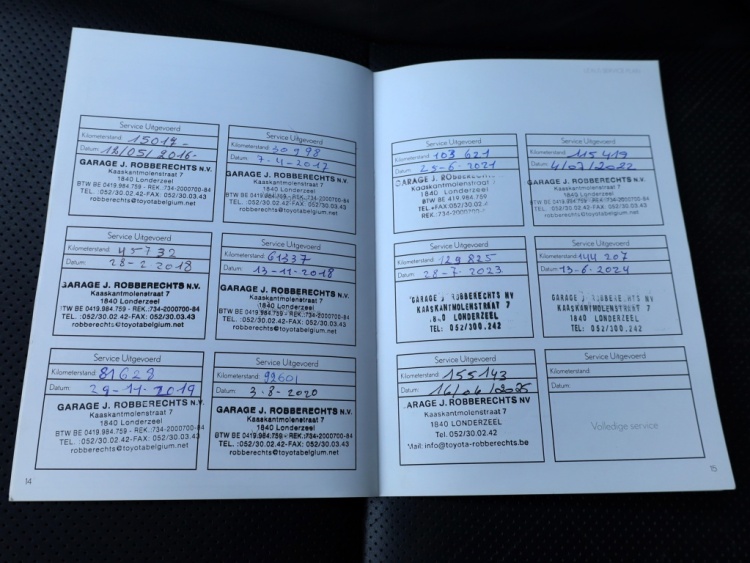 Service Uitgevoerd
Kilometerstand: 15017-
Datum: 12/05/2016-
GARAGE J. ROBBERECHTS N.V.
Kaaskantmolenstraat 7
1840 Londerzeel
BTW BE 0419.984.759 - REK.:734-2000700-84
TEL. :052/30.02.42-FAX: 052/30.03.43
robberechts@toyotabelgium.net
Service Uitgevoerd
Kilometerstand: 30198
Datum: 7-4-2017
GARAGE J. ROBBERECHTS N.V.
Kaaskantmolenstraat 7
1840 Londerzeel
BTW BE 0419.984.759 - REK.:734-2000700-84
TEL. :052/30.02.42-FAX: 052/30.03.43
robberechts@toyotabelgium.net
Service Uitgevoerd
Kilometerstand: 45732
Datum: 28-2-2018
GARAGE J. ROBBERECHTS N.V.
Kaaskantmolenstraat 7
1840 Londerzeel
BTW BE 0419.984.759 - REK.:734-2000700-84
TEL. :052/30.02.42-FAX: 052/30.03.43
robberechts@toyotabelgium.net
Service Uitgevoerd
Kilometerstand: 61337
Datum: 13-11-2018
GARAGE J. ROBBERECHTS N.V.
Kaaskantmolenstraat 7
1840 Londerzeel
BTW BE 0419.984.759 - REK.:734-2000700-84
TEL. :052/30.02.42-FAX: 052/30.03.43
robberechts@toyotabelgium.net
Service Uitgevoerd
Kilometerstand: 81623
Datum: 29-11-2019
GARAGE J. ROBBERECHTS N.V.
Kaaskantmolenstraat 7
1840 Londerzeel
BTW BE 0419.984.759 - REK.:734-2000700-84
TEL. :052/30.02.42-FAX: 052/30.03.43
robberechts@toyotabelgium.net
Service Uitgevoerd
Kilometerstand: 92601
Datum: 3-8-2020
GARAGE J. ROBBERECHTS N.V.
Kaaskantmolenstraat 7
1840 Londerzeel
BTW BE 0419.984.759 - REK.:734-2000700-84
TEL. :052/30.02.42-FAX: 052/30.03.43
robberechts@toyotabelgium.net
14
Service Uitgevoerd
Kilometerstand: 103 621
Datum: 25-6-2021
GARAGE J. ROBBERECHTS
Kaaskantmolenstraat 7
1840 Londerzeel
BTW BE 0419.984.759
TEL. 052/30.02.42
REK.:734-2000700-
Service Uitgevoerd
Kilometerstand: 115419
Datum: 4/07/2022
GARAGE J. ROBBERECHTS N.V.
Kaaskantmolenstraat 7
1840 Londerzeel
BTW BE 0419.984.759 - REK.:734-2000700-84
TEL. :052/30.02.42-FAX: 052/30.03.43
robberechts@toyotabelgium.net
Service Uitgevoerd
Kilometerstand: 129825
Datum: 28-7-2023
GARAGE J ROBBERECHTS NV
KAASKANTMOLENSTRAAT 7
1840 LONDERZEEL
TEL: 052/300.242
Service Uitgevoerd
Kilometerstand: 144 207
Datum: 13-6-2024
GARAGE J ROBBERECHTS NV
KAASKANTMOLENSTRAAT 7
1840 LONDERZEEL
TEL: 052/300.242
Service Uitgevoerd
Kilometerstand: 155143
Datum: 16/04/2025
ARAGE J. ROBBERECHTS NV
Kaaskantmolenstraat 7
1840 LONDERZEEL
Tel. 052/30.02.42
Mail: info@toyota-robberechts.be
Service Uitgevoerd
Kilometerstand:
Datum:
Volledige service
15